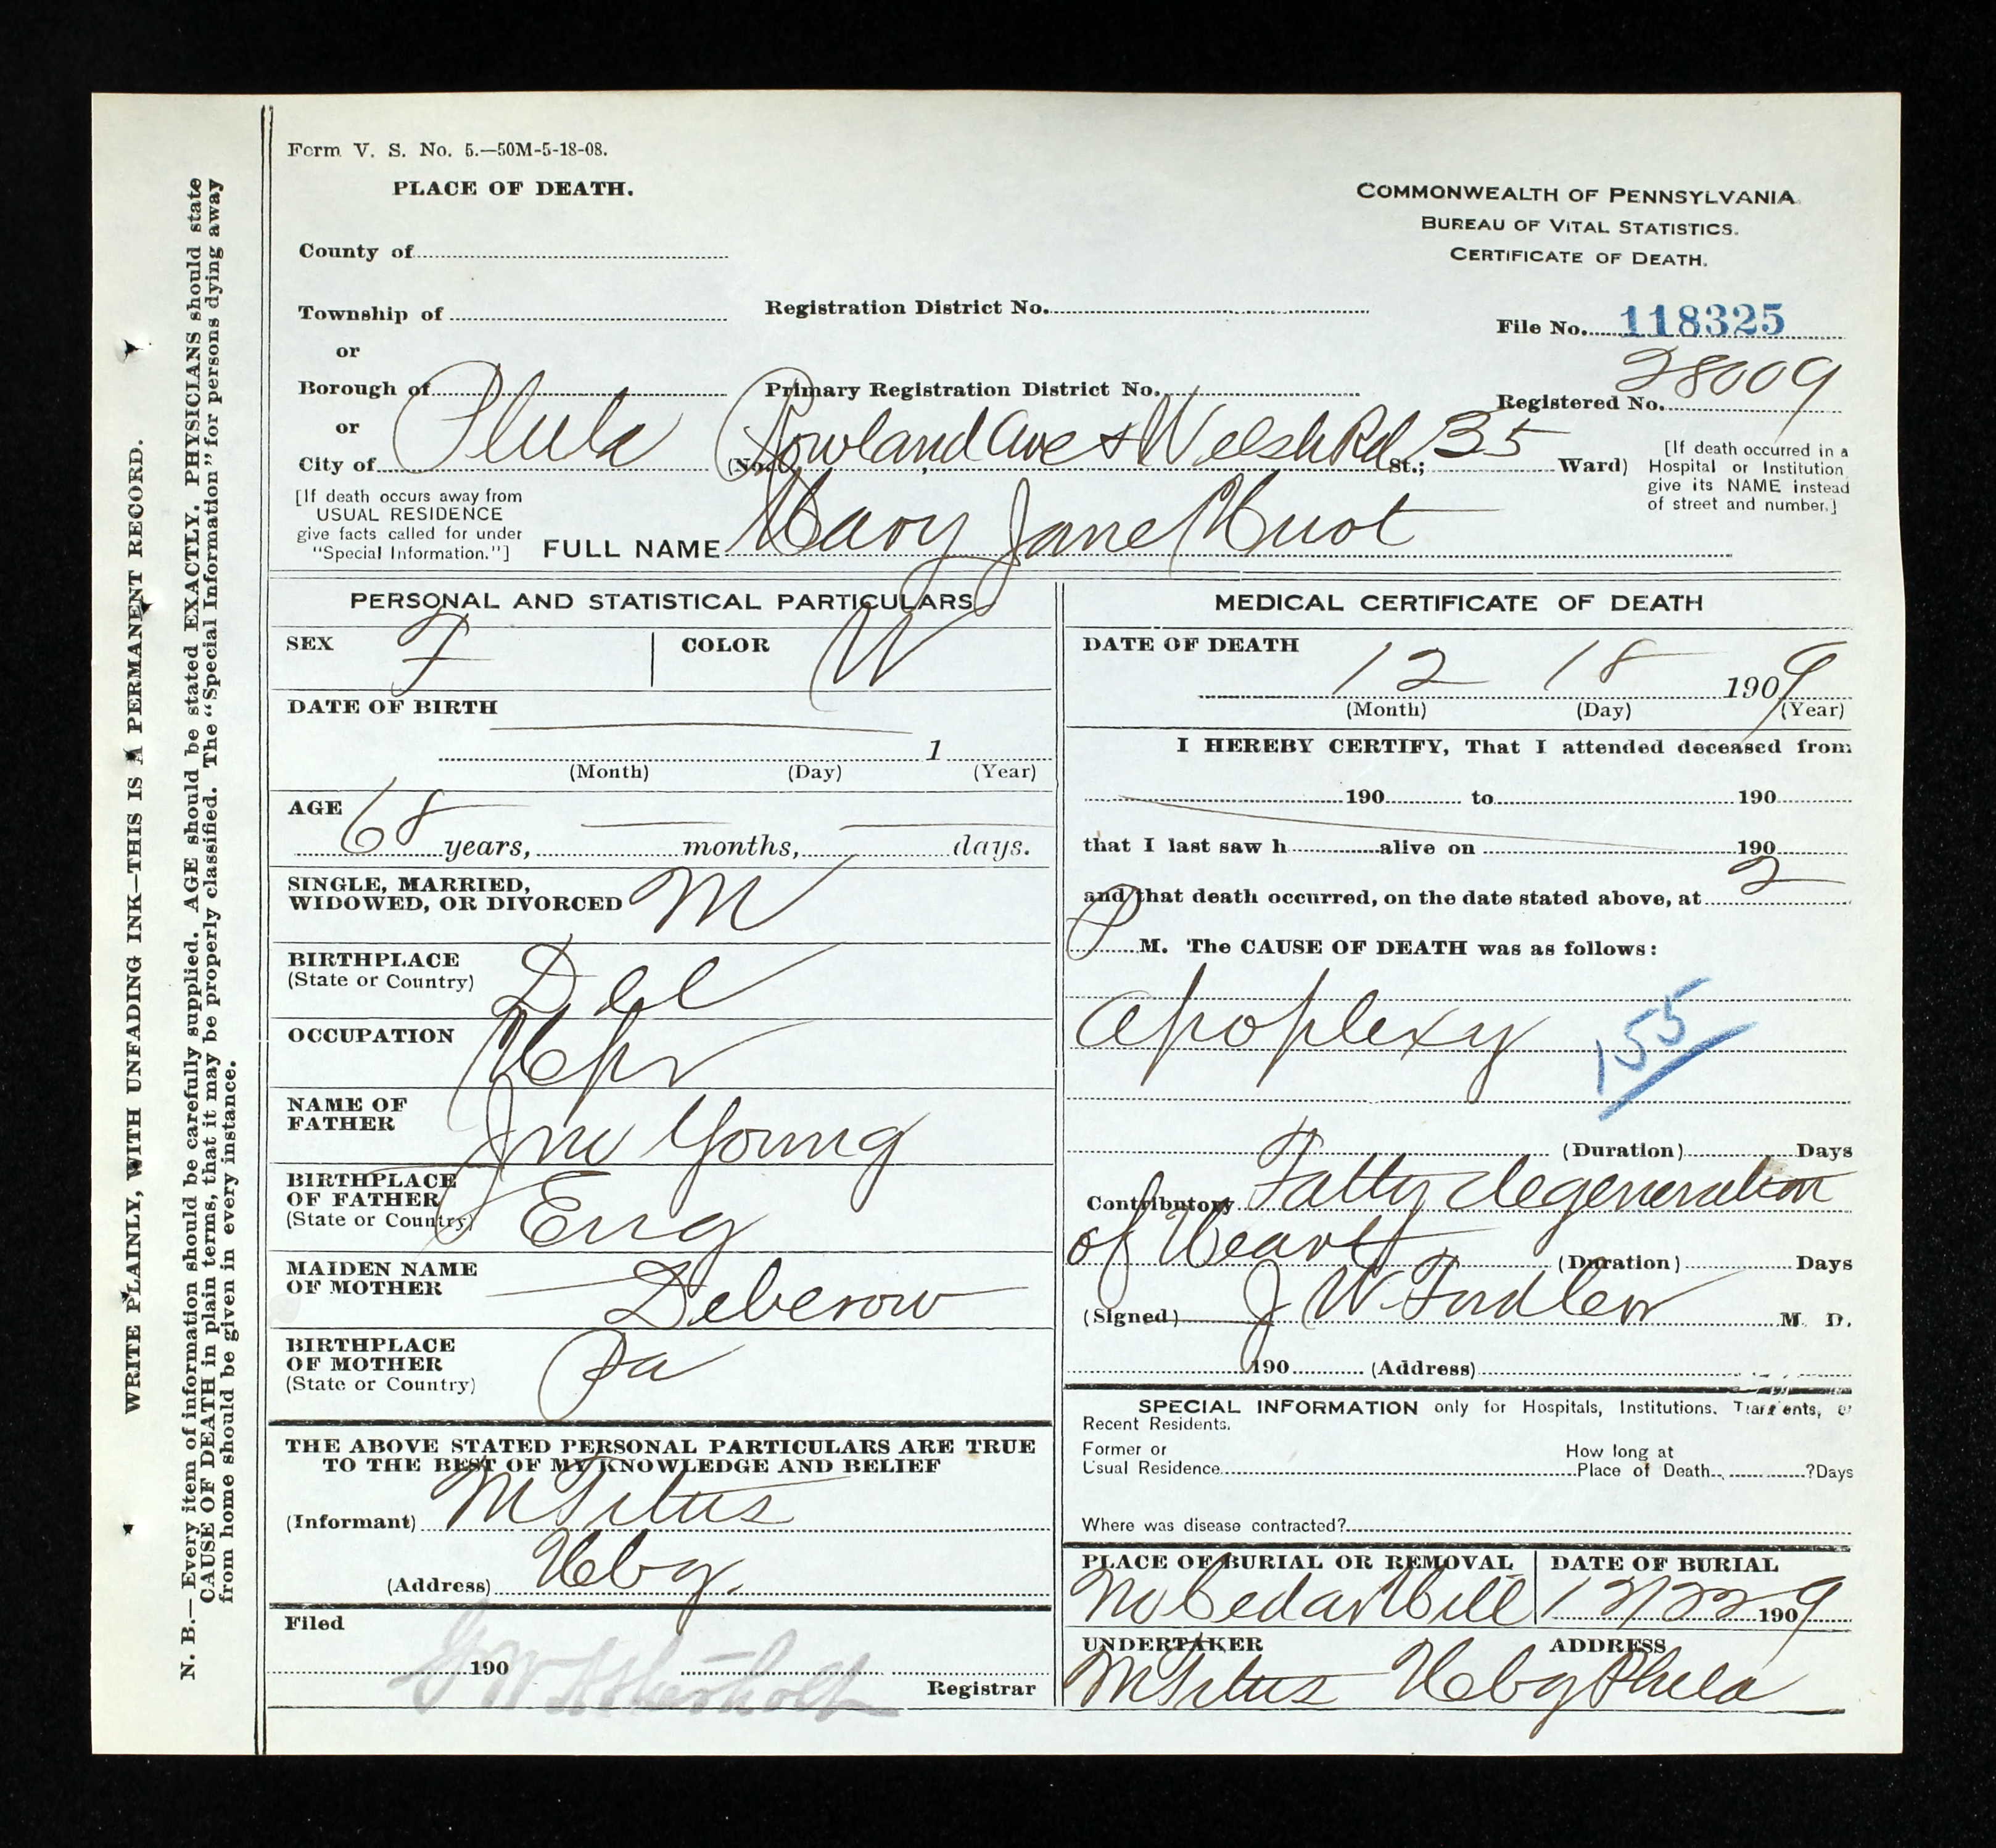 Form V. S. No. 5.—50M-5-18-08.
PLACE OF DEATH.
COMMONWEALTH OF PENNSYLVANIA
BUREAU OF VITAL STATISTICS.
CERTIFICATE OF DEATH.
County of
Township of
Registration District No.
File No. 118325
or
Borough of
Primary Registration District No.
Registered No. 28009
or
City of Phila (No. Rowland Ave & Welsh Rd St.; 35 Ward)
[If death occurred in a
Hospital or Institution
give its NAME instead
of street and number.]
[If death occurs away from
USUAL RESIDENCE
give facts called for under
"Special Information."]
FULL NAME Mary Jane
PERSONAL AND STATISTICAL PARTICULARS
SEX F
COLOR W
DATE OF BIRTH
1
(Month) (Day) (Year)
AGE
68 years, months, days.
SINGLE, MARRIED,
WIDOWED, OR DIVORCED M
BIRTHPLACE
(State or Country) Del
OCCUPATION
NAME OF
FATHER Jno Young
BIRTHPLACE
OF FATHER
(State or Country) Eng
MAIDEN NAME
OF MOTHER Deberow
BIRTHPLACE
OF MOTHER
(State or Country) Pa
THE ABOVE STATED PERSONAL PARTICULARS ARE TRUE
TO THE BEST OF MY KNOWLEDGE AND BELIEF
(Informant) M Titus
(Address) Hbg.
Filed
190
Registrar
MEDICAL CERTIFICATE OF DEATH
DATE OF DEATH
12 18 1909
(Month) (Day) (Year)
I HEREBY CERTIFY, That I attended deceased from
190 to 190
that I last saw h alive on 190
and that death occurred, on the date stated above, at 2
P M. The CAUSE OF DEATH was as follows:
Apoplexy 155
(Duration) Days
Contributory Fatty degeneration
of Heart (Duration) Days
(Signed) J W M. D.
190 (Address)
SPECIAL INFORMATION only for Hospitals, Institutions, Transients, or
Recent Residents.
Former or
Usual Residence
How long at
Place of Death ?Days
Where was disease contracted?
PLACE OF BURIAL OR REMOVAL
No Cedar Hill
DATE OF BURIAL
12/22 1909
UNDERTAKER
M Titus
ADDRESS
Hbg Phila
WRITE PLAINLY, WITH UNFADING INK—THIS IS A PERMANENT RECORD.
N. B.—Every item of information should be carefully supplied. AGE should be stated EXACTLY. PHYSICIANS should state
CAUSE OF DEATH in plain terms, that it may be properly classified. The "Special Information" for persons dying away
from home should be given in every instance.